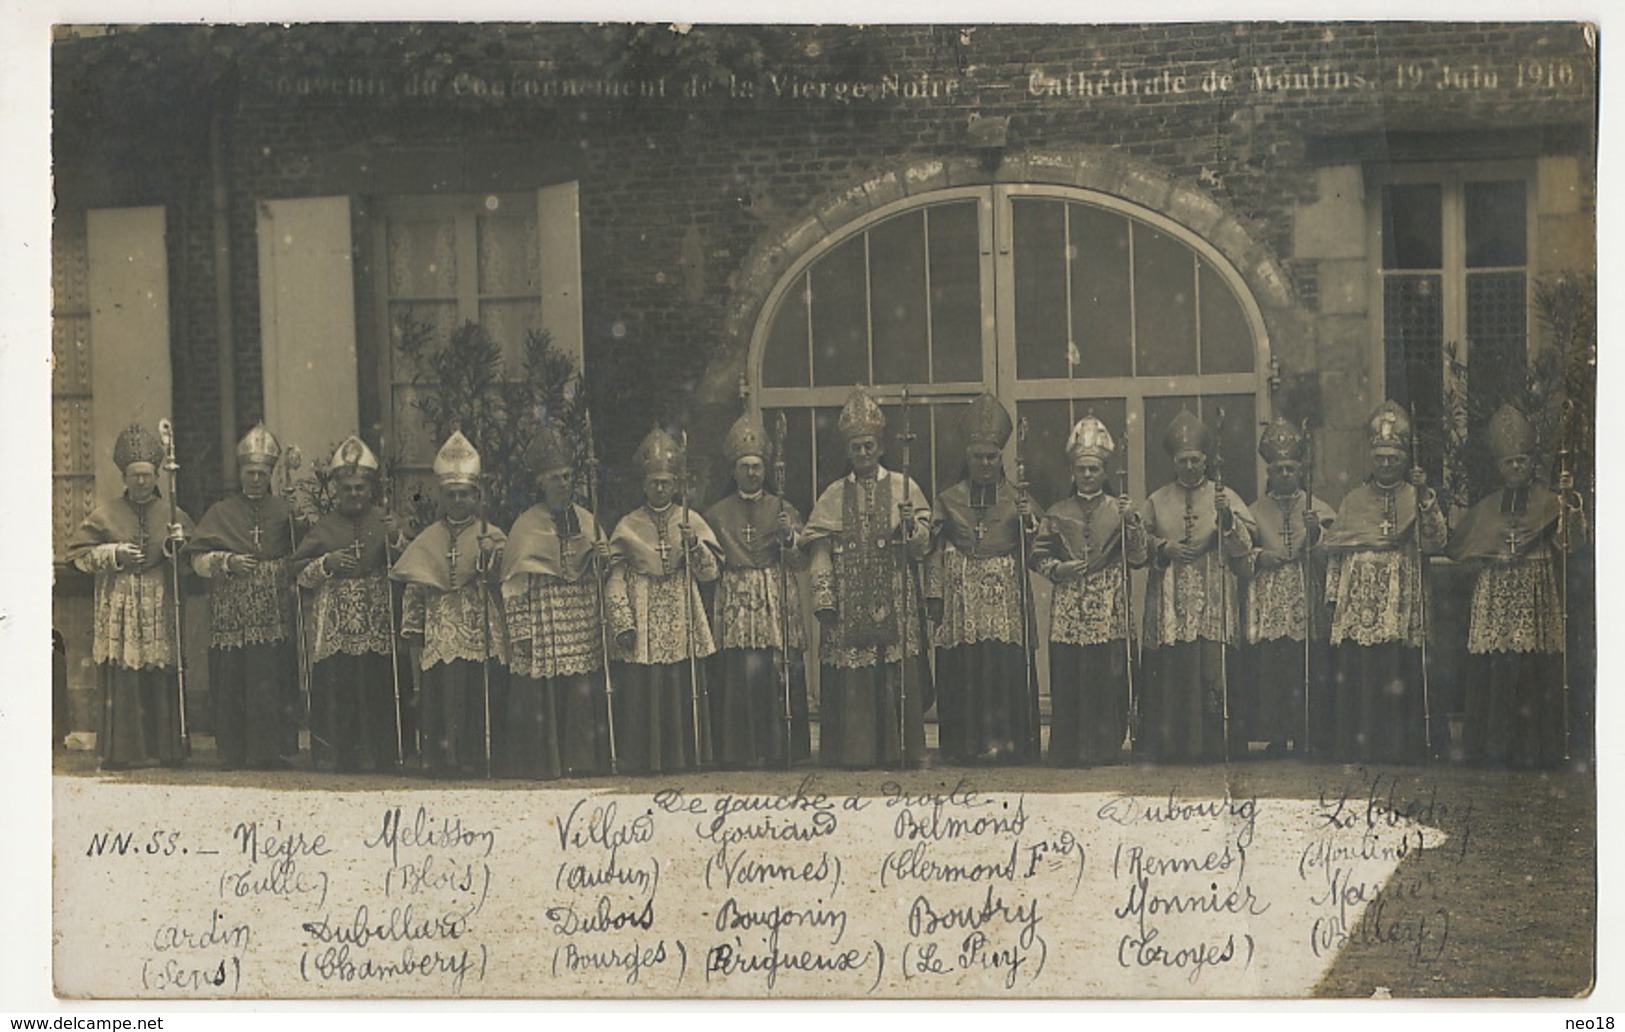 Souvenir du Couronnement de la Vierge Noire — Cathédrale de Moulins, 19 Juin 1910
De gauche à droite.
NN. SS. — Négre Melisson Villard Gouraud Belmont Dubourg Lobbedey
(Tulle) (Blois) (Autun) (Vannes) (Clermont Frd) (Rennes) (Moulins)
Ardin Dubillard Dubois Bougonin Boutry Monnier Manier
(Sens) (Chambery) (Bourges) (Périgueux) (Le Puy) (Troyes) (Belley)
www.delcampe.net
neo18